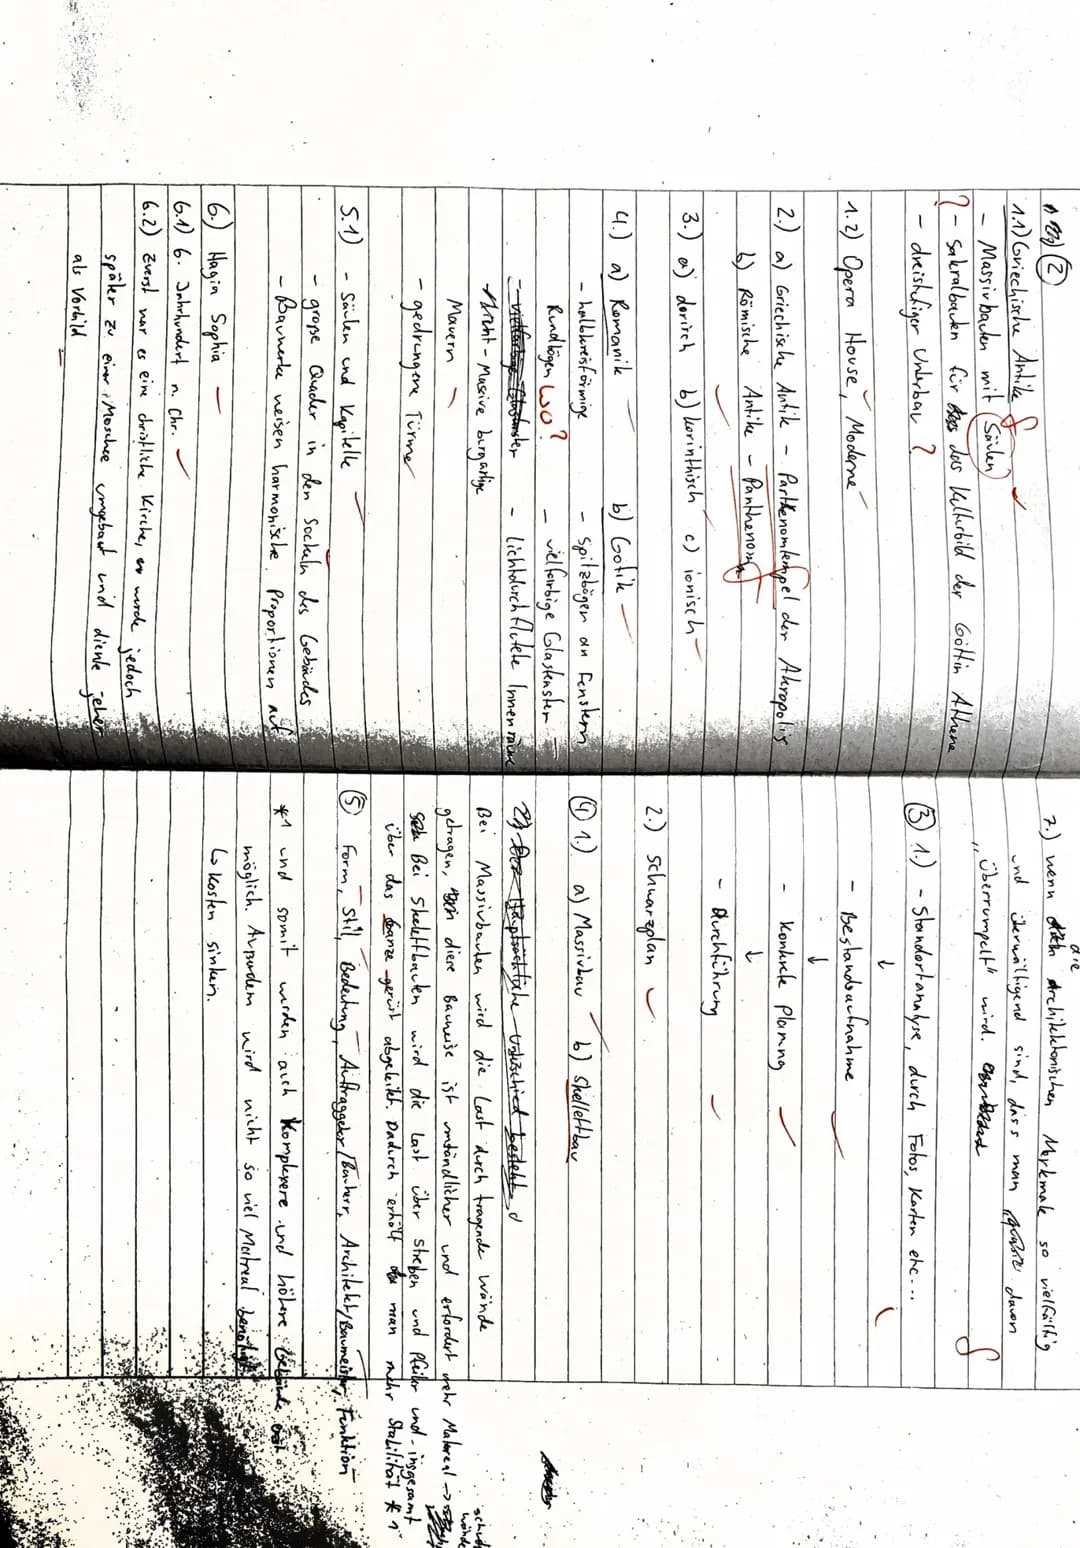 ②
1.1) Griechische Antike
- Massivbauten mit Säulen
? - Sakralbauten für das Kultbild der Göttin Athene
- dreistufiger Unterbau ?
1.2) Opera House, Moderne
2.) a) Griechische Antik - Parthenomtempel der Akropolis
b) Römische Antike - Panthenom
3.) a) dorisch b) korinthisch c) ionisch
4.) a) Romanik b) Gotik
- halbkreisförmige - Spitzbögen an Fenstern
Rundbögen wo? - vielfarbige Glasfenster
- vielfarbige Glasfenster - lichtdurchflutete Innenräume
- Massive burgartige
Mauern
- gedrungene Türme
5.1) - Säulen und Kapitelle
- große Quader in den Sockeln des Gebäudes
- Bauwerke weisen harmonische Proportionen auf
6.) Hagia Sophia
6.1) 6. Jahrhundert n. Chr.
6.2) Zuerst war es eine christliche Kirche, wurde jedoch
später zu einer Moschee umgebaut und diente
als Vorbild
7.) wenn die architektonischen Merkmale so vielfältig
und überwältigend sind, dass man davon
„überrumpelt" wird.
③ 1.) - Standortanalyse, durch Fotos, Karten etc...
↓
- Bestandsaufnahme
↓
- Konkrete Planung
↓
- Durchführung
2.) Schwarzplan
④ 1.) a) Massivbau b) Skelettbau
2) Der Hauptsächliche Unterschied besteht d
Bei Massivbauten wird die Last durch tragende Wände
getragen, diese Bauweise ist umständlicher und erfordert mehr Matereal →
Bei Skelettbauten wird die Last über Streben und Pfeiler und insgesamt
über das Ganze gerüst abgeleitet. Dadurch erhält man mehr Stabilität *1
⑤ Form, Stil, Bedeutung, Auftraggeber/Bauherr, Architekt/Baumeister, Funktion
*1 und somit würden auch Komplexere und höhere Gebäude
möglich. Ausserdem wird nicht so viel Matreal benötigt
↳ kosten sinken.